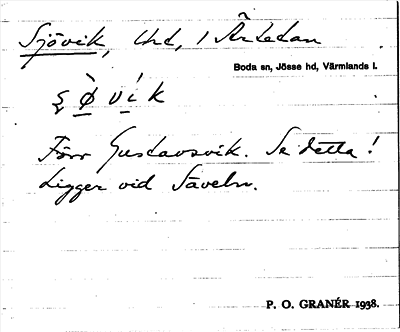 Sjövik, Und, i Ärtetan
Boda sn, Jösse hd, Värmlands l.
ş ø̀ v í k
Förr Gustavsvik. Se detta!
Ligger vid Säveln.
P. O. GRANÉR 1938.